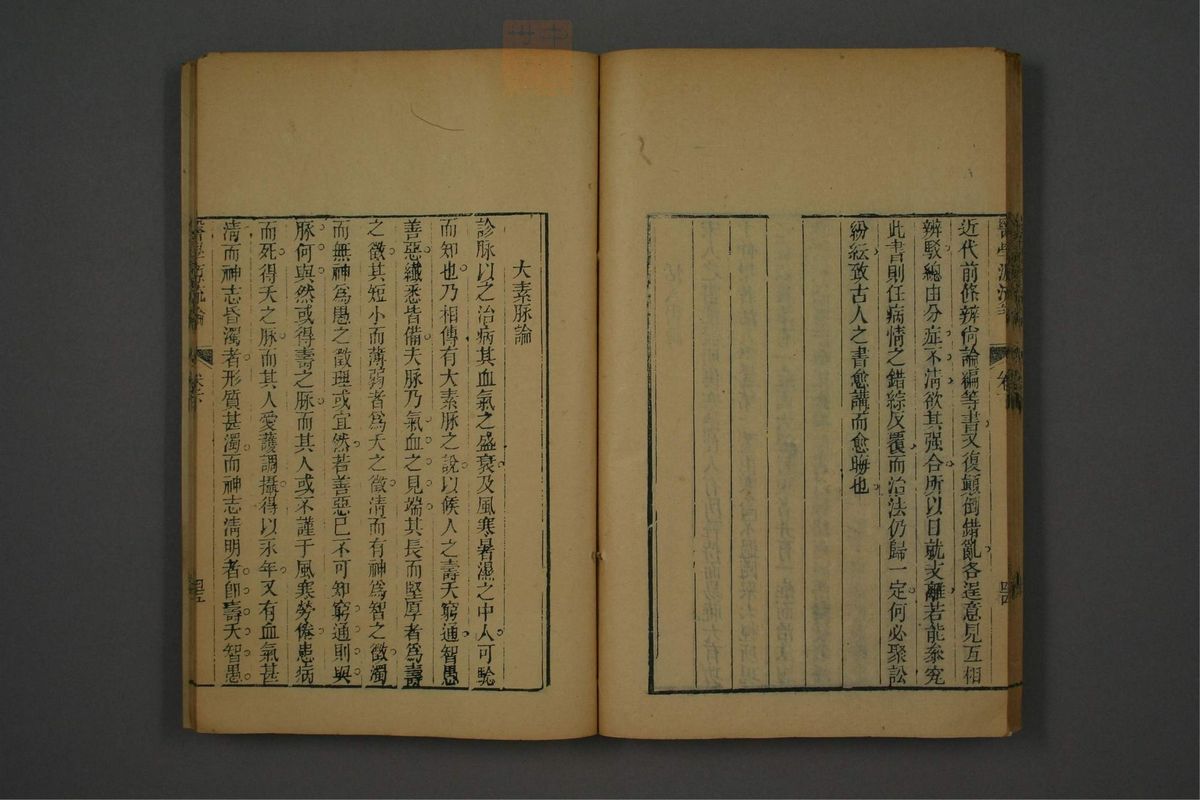 近代前條辨尙論編等書又復顛倒錯亂各逞意見互相
辨駁總由分症不淸欲其强合所以日就支離若能叅究
此書則任病情之錯綜反覆而治法仍歸一定何必聚訟
紛紜致古人之書愈講而愈晦也
大素脉論
診脉以之治病其血氣之盛衰及風寒暑濕之中人可騐
而知也乃相傳有大素脉之說以候人之壽夭窮通智愚
善惡纖悉皆備夫脉乃氣血之見端其長而堅厚者爲壽
之徵其短小而薄弱者爲夭之徵淸而有神爲智之徵濁
而無神爲愚之徵理或宜然若善惡已不可知窮通則與
脉何與然或得壽之脉而其人或不謹于風寒勞倦患病
而死得夭之脉而其人愛護調攝得以永年又有血氣甚
淸而神志昏濁者形質甚濁而神志淸明者卽壽夭智愚
醫學源流論
卷六